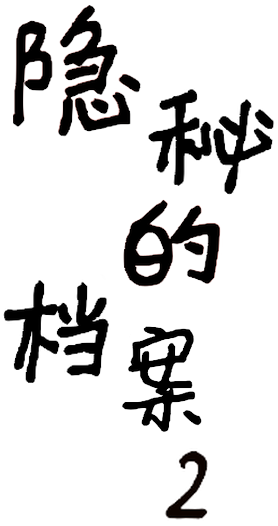 隐秘
的
档案
2